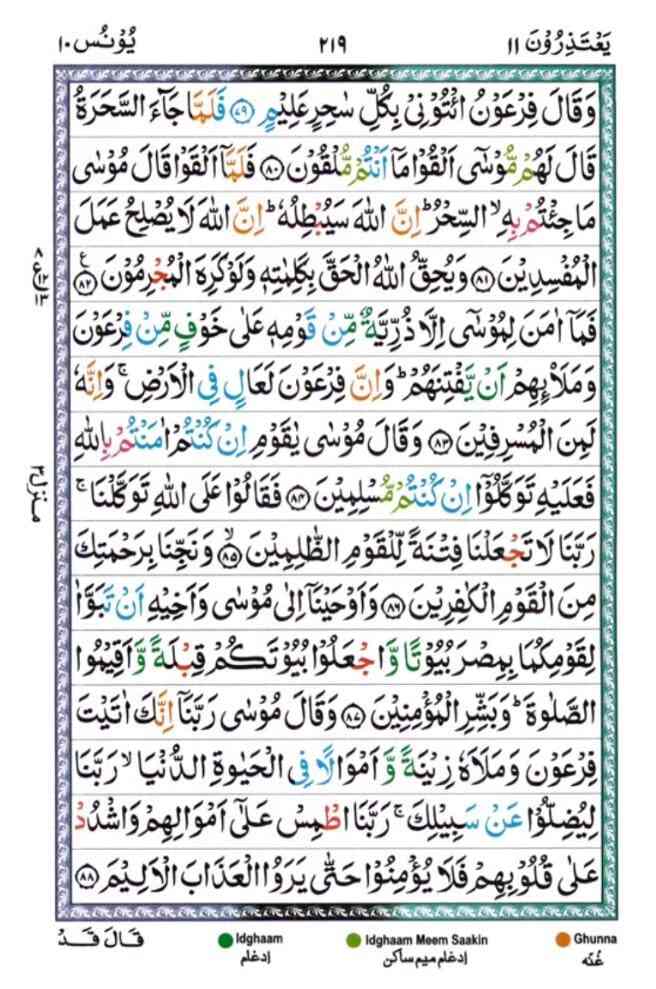 يَعْتَذِرُوْنَ ١١ ٢١٩ يُوْنُس ١٠
وَقَالَ فِرْعَوْنُ ائْتُوْنِيْ بِكُلِّ سٰحِرٍ عَلِيْمٍ ﴿٧٩﴾ فَلَمَّا جَآءَ السَّحَرَةُ
قَالَ لَهُمْ مُّوْسٰٓى اَلْقُوْا مَآ اَنْتُمْ مُّلْقُوْنَ ﴿٨٠﴾ فَلَمَّآ اَلْقَوْا قَالَ مُوْسٰى
مَا جِئْتُمْ بِهِ ۙ السِّحْرُ ؕ اِنَّ اللّٰهَ سَيُبْطِلُهٗ ؕ اِنَّ اللّٰهَ لَا يُصْلِحُ عَمَلَ
الْمُفْسِدِيْنَ ﴿٨١﴾ وَيُحِقُّ اللّٰهُ الْحَقَّ بِكَلِمٰتِهٖ وَلَوْ كَرِهَ الْمُجْرِمُوْنَ ﴿٨٢﴾ ع
فَمَآ اٰمَنَ لِمُوْسٰٓى اِلَّا ذُرِّيَّةٌ مِّنْ قَوْمِهٖ عَلٰى خَوْفٍ مِّنْ فِرْعَوْنَ
وَمَلَا۟ئِهِمْ اَنْ يَّفْتِنَهُمْ ؕ وَاِنَّ فِرْعَوْنَ لَعَالٍ فِى الْاَرْضِ ۚ وَاِنَّهٗ
لَمِنَ الْمُسْرِفِيْنَ ﴿٨٣﴾ وَقَالَ مُوْسٰى يٰقَوْمِ اِنْ كُنْتُمْ اٰمَنْتُمْ بِاللّٰهِ
فَعَلَيْهِ تَوَكَّلُوْٓا اِنْ كُنْتُمْ مُّسْلِمِيْنَ ﴿٨٤﴾ فَقَالُوْا عَلَى اللّٰهِ تَوَكَّلْنَا ۚ
رَبَّنَا لَا تَجْعَلْنَا فِتْنَةً لِّلْقَوْمِ الظّٰلِمِيْنَ ﴿٨٥﴾ ۙ وَنَجِّنَا بِرَحْمَتِكَ
مِنَ الْقَوْمِ الْكٰفِرِيْنَ ﴿٨٦﴾ وَاَوْحَيْنَآ اِلٰى مُوْسٰى وَاَخِيْهِ اَنْ تَبَوَّاٰ
لِقَوْمِكُمَا بِمِصْرَ بُيُوْتًا وَّاجْعَلُوْا بُيُوْتَكُمْ قِبْلَةً وَّاَقِيْمُوا
الصَّلٰوةَ ؕ وَبَشِّرِ الْمُؤْمِنِيْنَ ﴿٨٧﴾ وَقَالَ مُوْسٰى رَبَّنَآ اِنَّكَ اٰتَيْتَ
فِرْعَوْنَ وَمَلَاَهٗ زِيْنَةً وَّاَمْوَالًا فِى الْحَيٰوةِ الدُّنْيَا ۙ رَبَّنَا
لِيُضِلُّوْا عَنْ سَبِيْلِكَ ۚ رَبَّنَا اطْمِسْ عَلٰٓى اَمْوَالِهِمْ وَاشْدُدْ
عَلٰى قُلُوْبِهِمْ فَلَا يُؤْمِنُوْا حَتّٰى يَرَوُا الْعَذَابَ الْاَلِيْمَ ﴿٨٨﴾
منزل ٣
قَالَ قَدْ Idghaam Idghaam Meem Saakin Ghunna
اِدغام اِدغام میم ساکن غُنّه